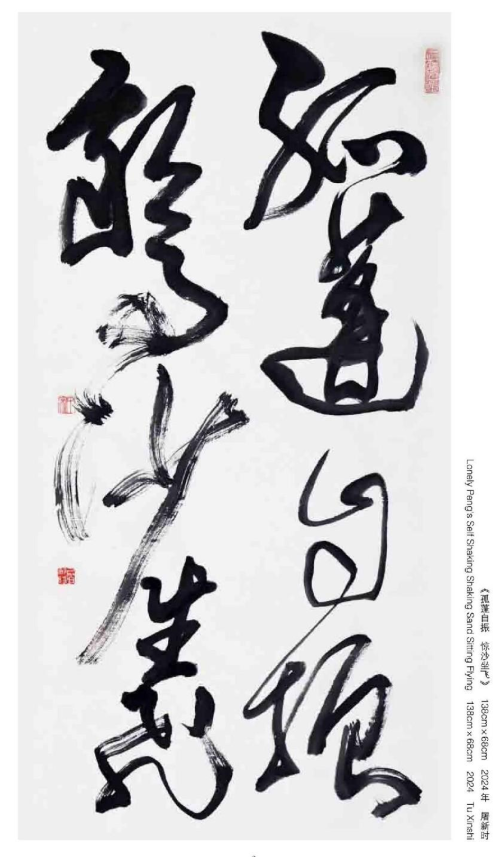 孤蓬自振
驚沙坐飛
《孤蓬自振 惊沙坐飞》 138cm x 68cm 2024年 屠新时
Lonely Peng's Self Shaking Shaking Sand Sitting Flying 138cm x 68cm 2024 Tu Xinshi